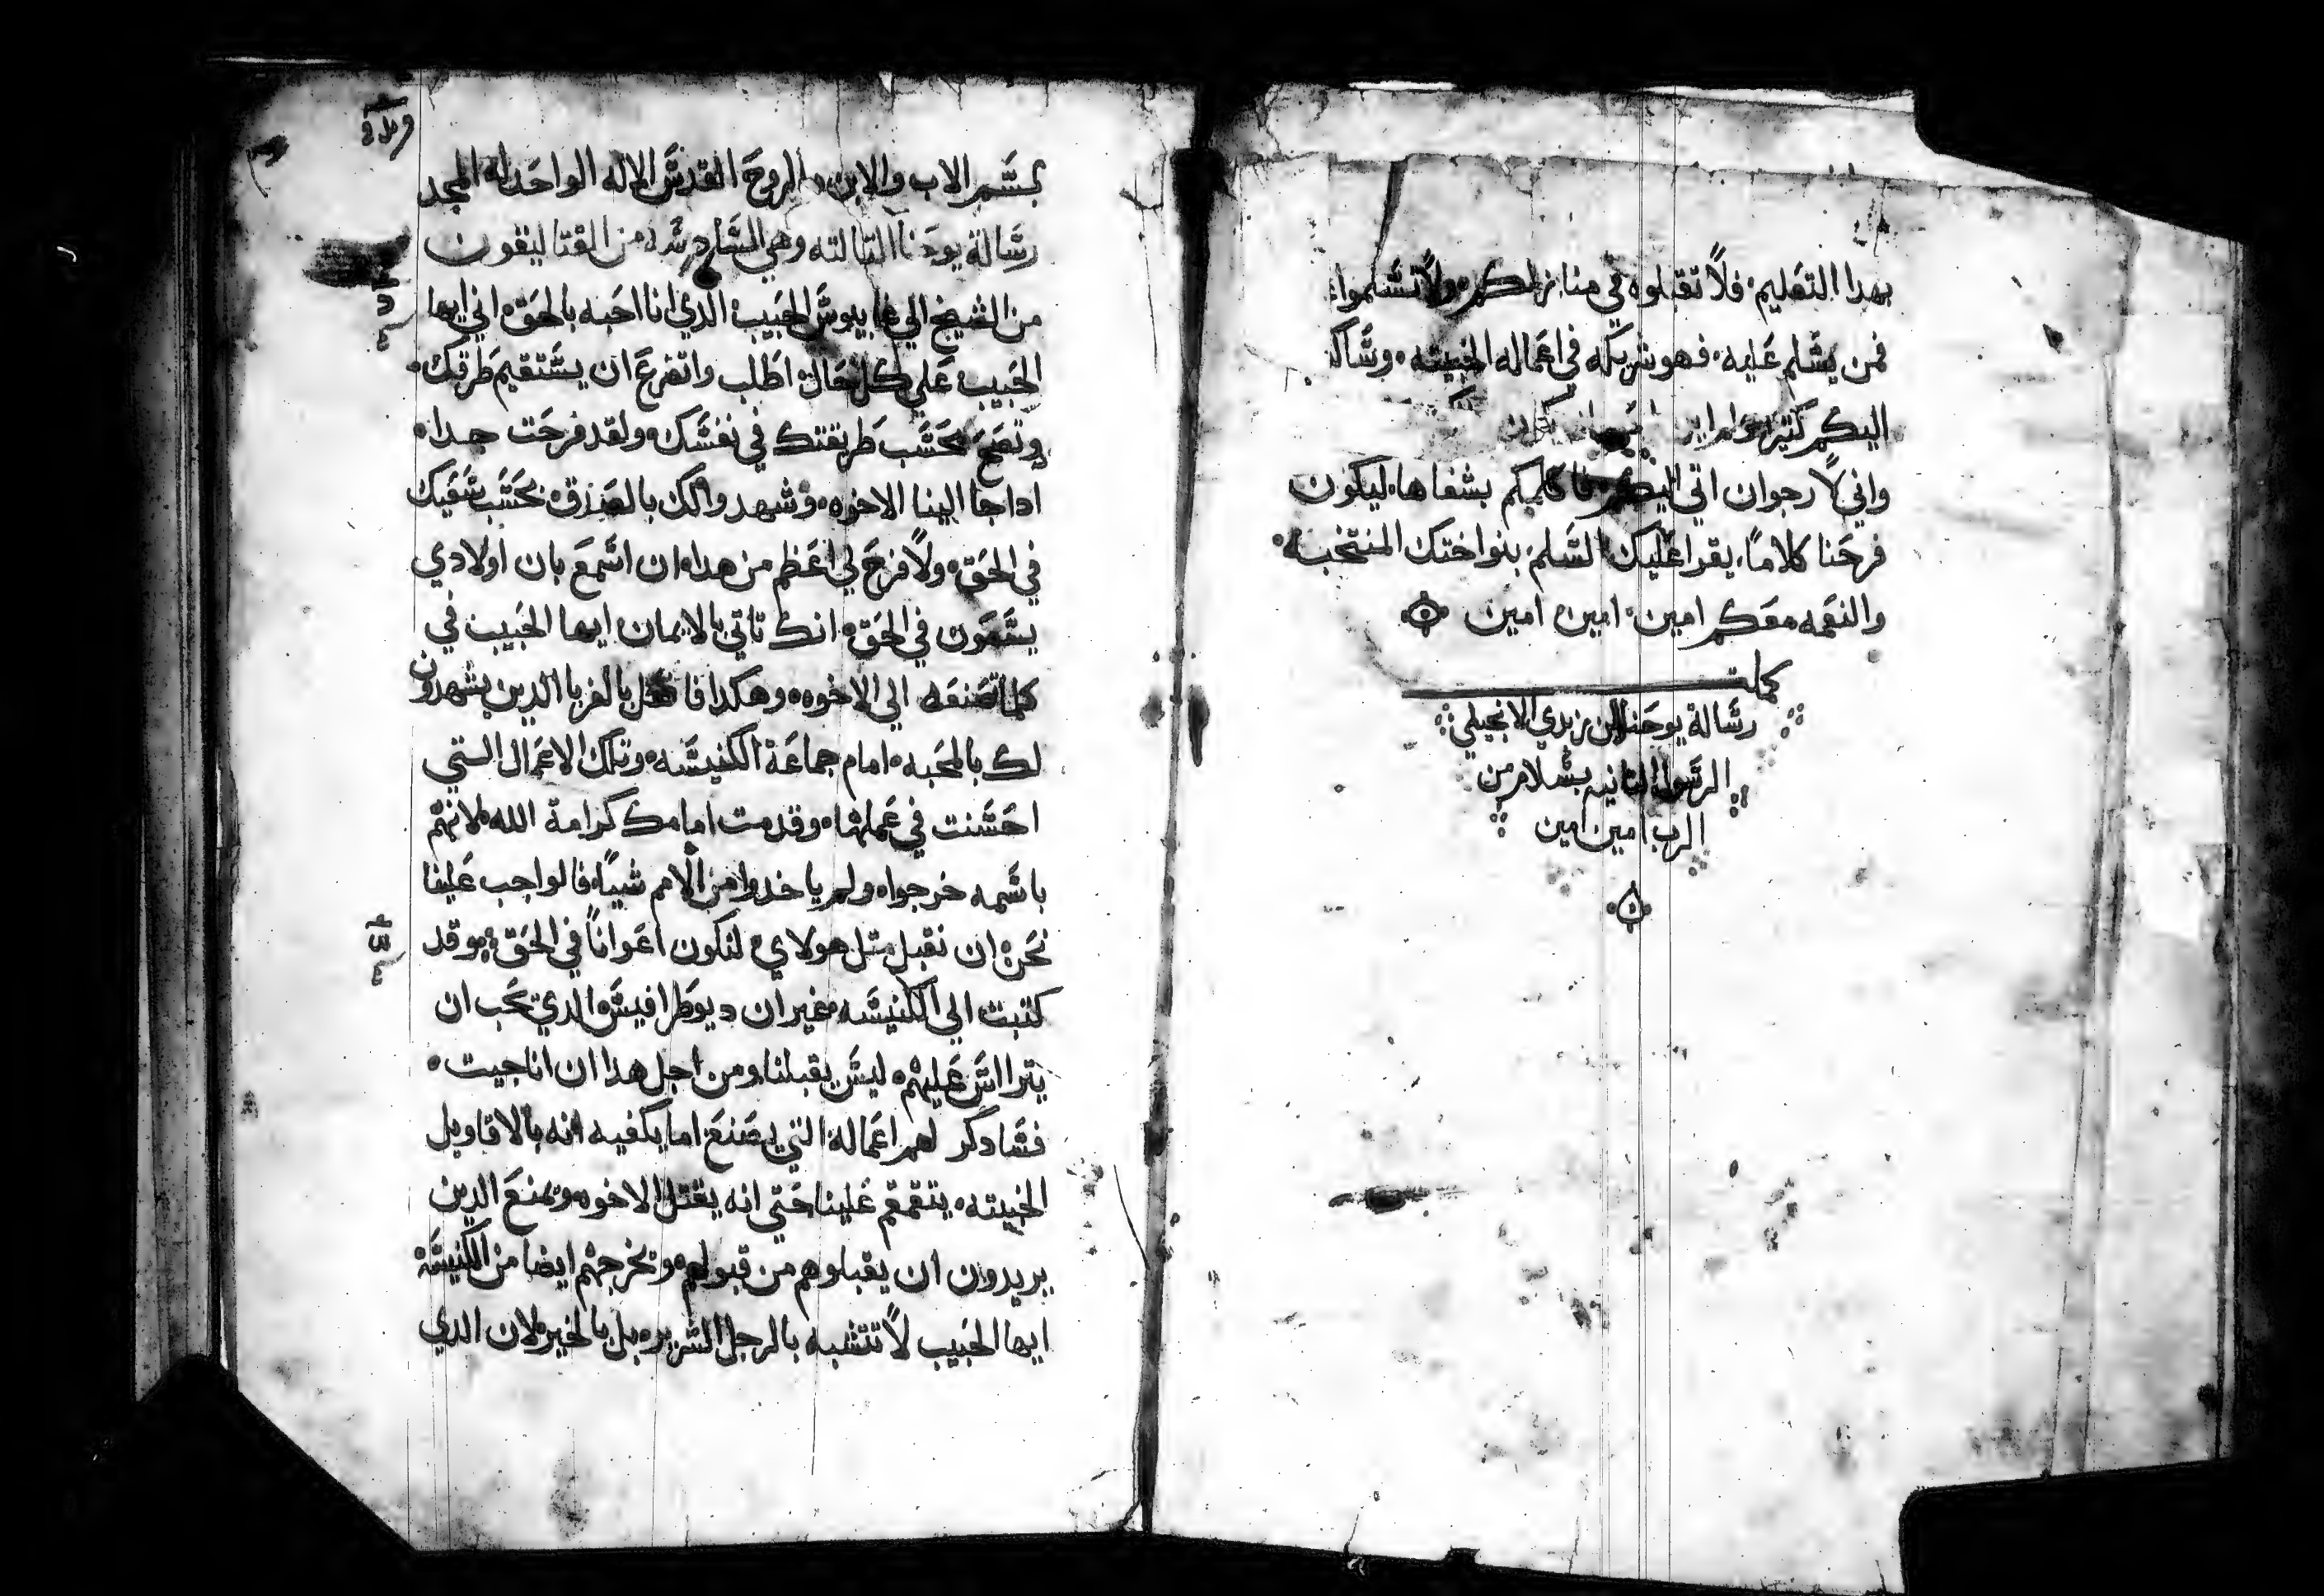 بهدا التعليم فلا تقبلوه في منازلكم ولا تسلموا
فمن يسلم عليه فهو شريكه في اعماله الخبيته وساكتب
اليكم كتيرا
واني لارجوا ان اتي اليكم فاكلمكم بشفاها ليكون
فرحنا كلاما يقرا عليك السلم بنو اختك المنتخبه
والنعمه معكم امين امين امين
كملت
رسالة يوحنا ابن زبدي الانجيلي
الرسول التانيه بسلام من
الرب امين امين
بسم الاب والابن والروح القدس الاله الواحد له المجد
رسالة يوحنا التالته وهي السادسه من القتاليقون
من الشيخ الي غاييوس الحبيب الدي انا احبه بالحق اني ايها
الحبيب علي كل حال اطلب واتضرع ان يستقيم طرقك
وتصح بحسب طريقتك في نفسك ولقد فرحت جدا
اداجا الينا الاخوه وشهدوا لك بالصدق بحسب سعيك
في الحق ولا فرح لي اعظم من هدا ان اسمع بان اولادي
يسعون في الحق انك تاتي بالايمان ايها الحبيب في
كلما تصنعه الي الاخوه وهكدا فافعل بالغربا الدين يشهدون
لك بالمحبه امام جماعة الكنيسه وتلك الاعمال التي
احسنت في عملها وقدمت امامك كرامة الله لانهم
باسمه خرجوا ولم ياخدوا من الامم شيئا فالواجب علينا
نحن ان نقبل متل هولاي لنكون اعوانا في الحق وقد
كتبت الي الكنيسه غير ان ديوطرافيس الدي يحب ان
يتراس عليهم ليس يقبلنا ومن اجل هدا ان انا جيت
فسادكر لهم اعماله التي يصنع اما يكفيه انه بالاقاويل
الخبيته يتقمقم علينا حتي انه يقتل الاخوه ويمنع الدين
يريدون ان يقبلوهم من قبولهم ويخرجهم ايضا من الكنيسه
ايها الحبيب لا تتشبه بالرجل الشرير بل بالخير لان الدي